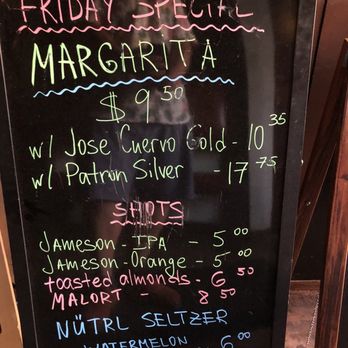 FRIDAY SPECIAL
MARGARITA
$ 9 50
w/ Jose Cuervo Gold - 10 35
w/ Patron Silver - 17 75
SHOTS
Jameson - IPA - 5 00
Jameson - Orange - 5 00
toasted almonds - 6 50
MALORT - 8 50
NÜTRL SELTZER
WATERMELON 6 00